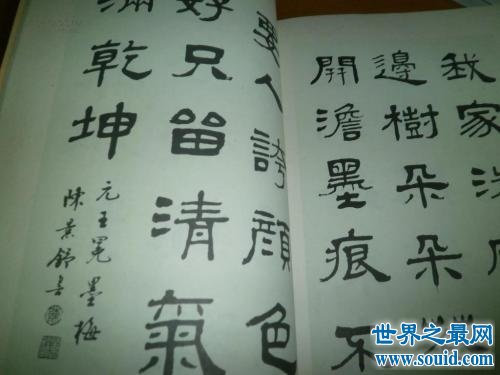 我家洗
邊樹朵朵
開澹墨痕不
要人誇顏色
好只留清氣
滿乾坤
元王冕墨梅
陳景舒書
世界之最网
www.souid.com